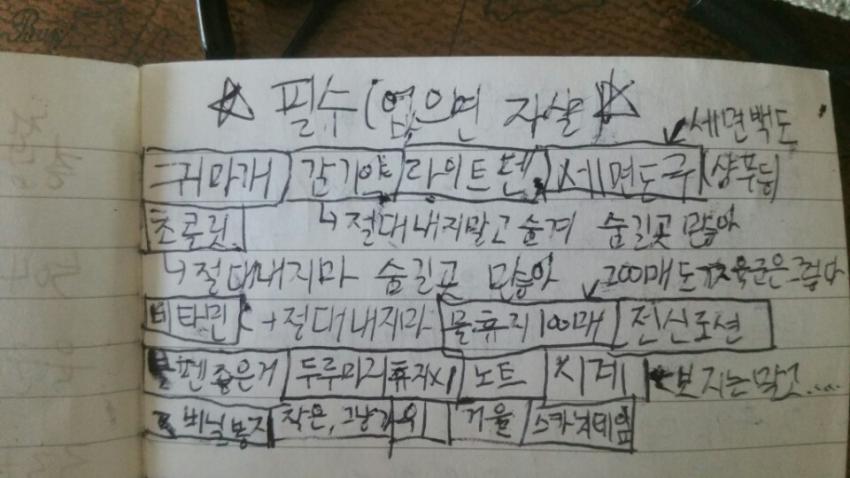 ☆ 필수 (없으면 자살) ☆
세면백도
귀마개 감기약 라이트펜 세면도구 (샴푸등
초콜릿 ↳ 절대내지말고 숨겨 숨길곳 많아
↳ 절대내지마 숨길곳 많아 200매도 육군은그렇다
비타민 → 절대내지마 물휴지100매 전신로션
펜좋은거 두루마리휴지x1 노트 시계 ← 보지는말고....
비닐봉지 작은, 그냥 거울 스카치테잎